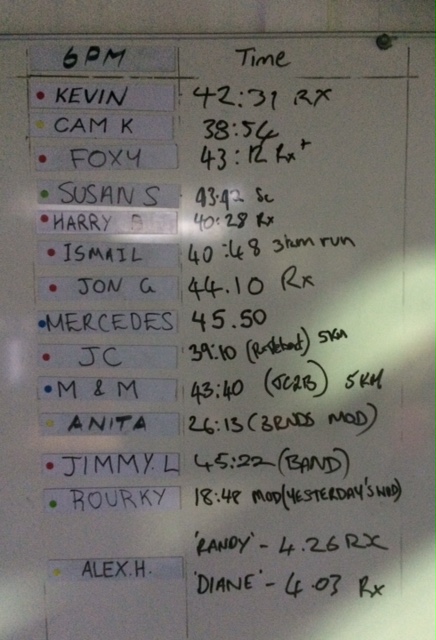 6PM Time
KEVIN 42:31 RX
CAM K 38:54
FOXY 43:12 Rx+
SUSAN S 43.42 Sc
HARRY B 40:28 Rx
ISMAIL 40:48 3km run
JON G 44.10 Rx
MERCEDES 45.50
JC 39:10 5KM
M & M 43:40 5KM
ANITA 26:13 (3RNDS MOD)
JIMMY. L 45:22 (BAND)
ROURKY 18:48 MOD (YESTERDAY'S WOD)
'RANDY' - 4.26 RX
ALEX.H. 'DIANE' - 4.03 Rx